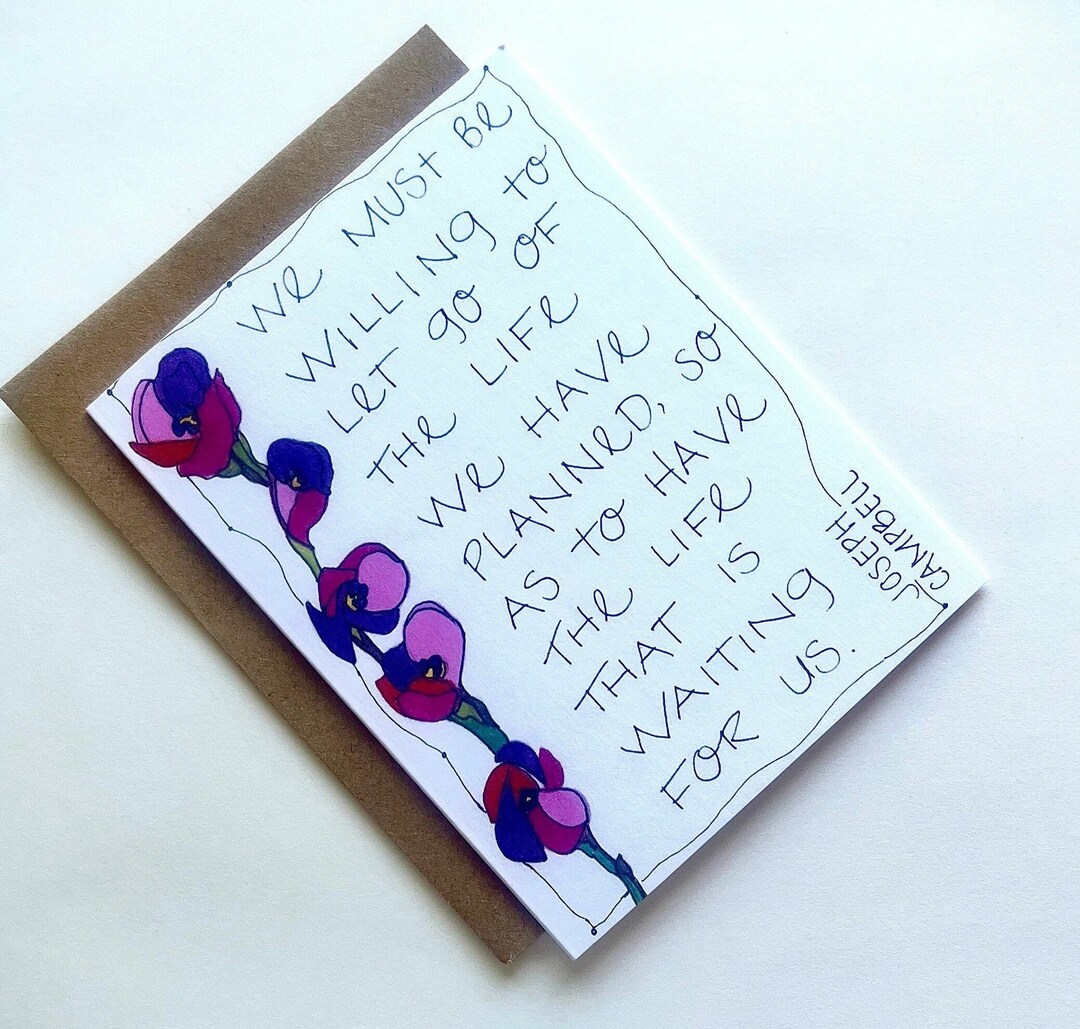 We MUSt Be
WILLINg to
LeT gO OF
THe LIFe
We HAVe
PLANNeD, SO
AS to HAVe
THe LIFe
THAT IS
WAITINg
FOR US.
JOSEPH
CAMPBELL